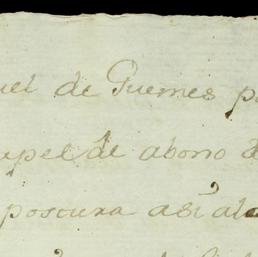 uel de Guemes p
apel de abono d
postura asi al